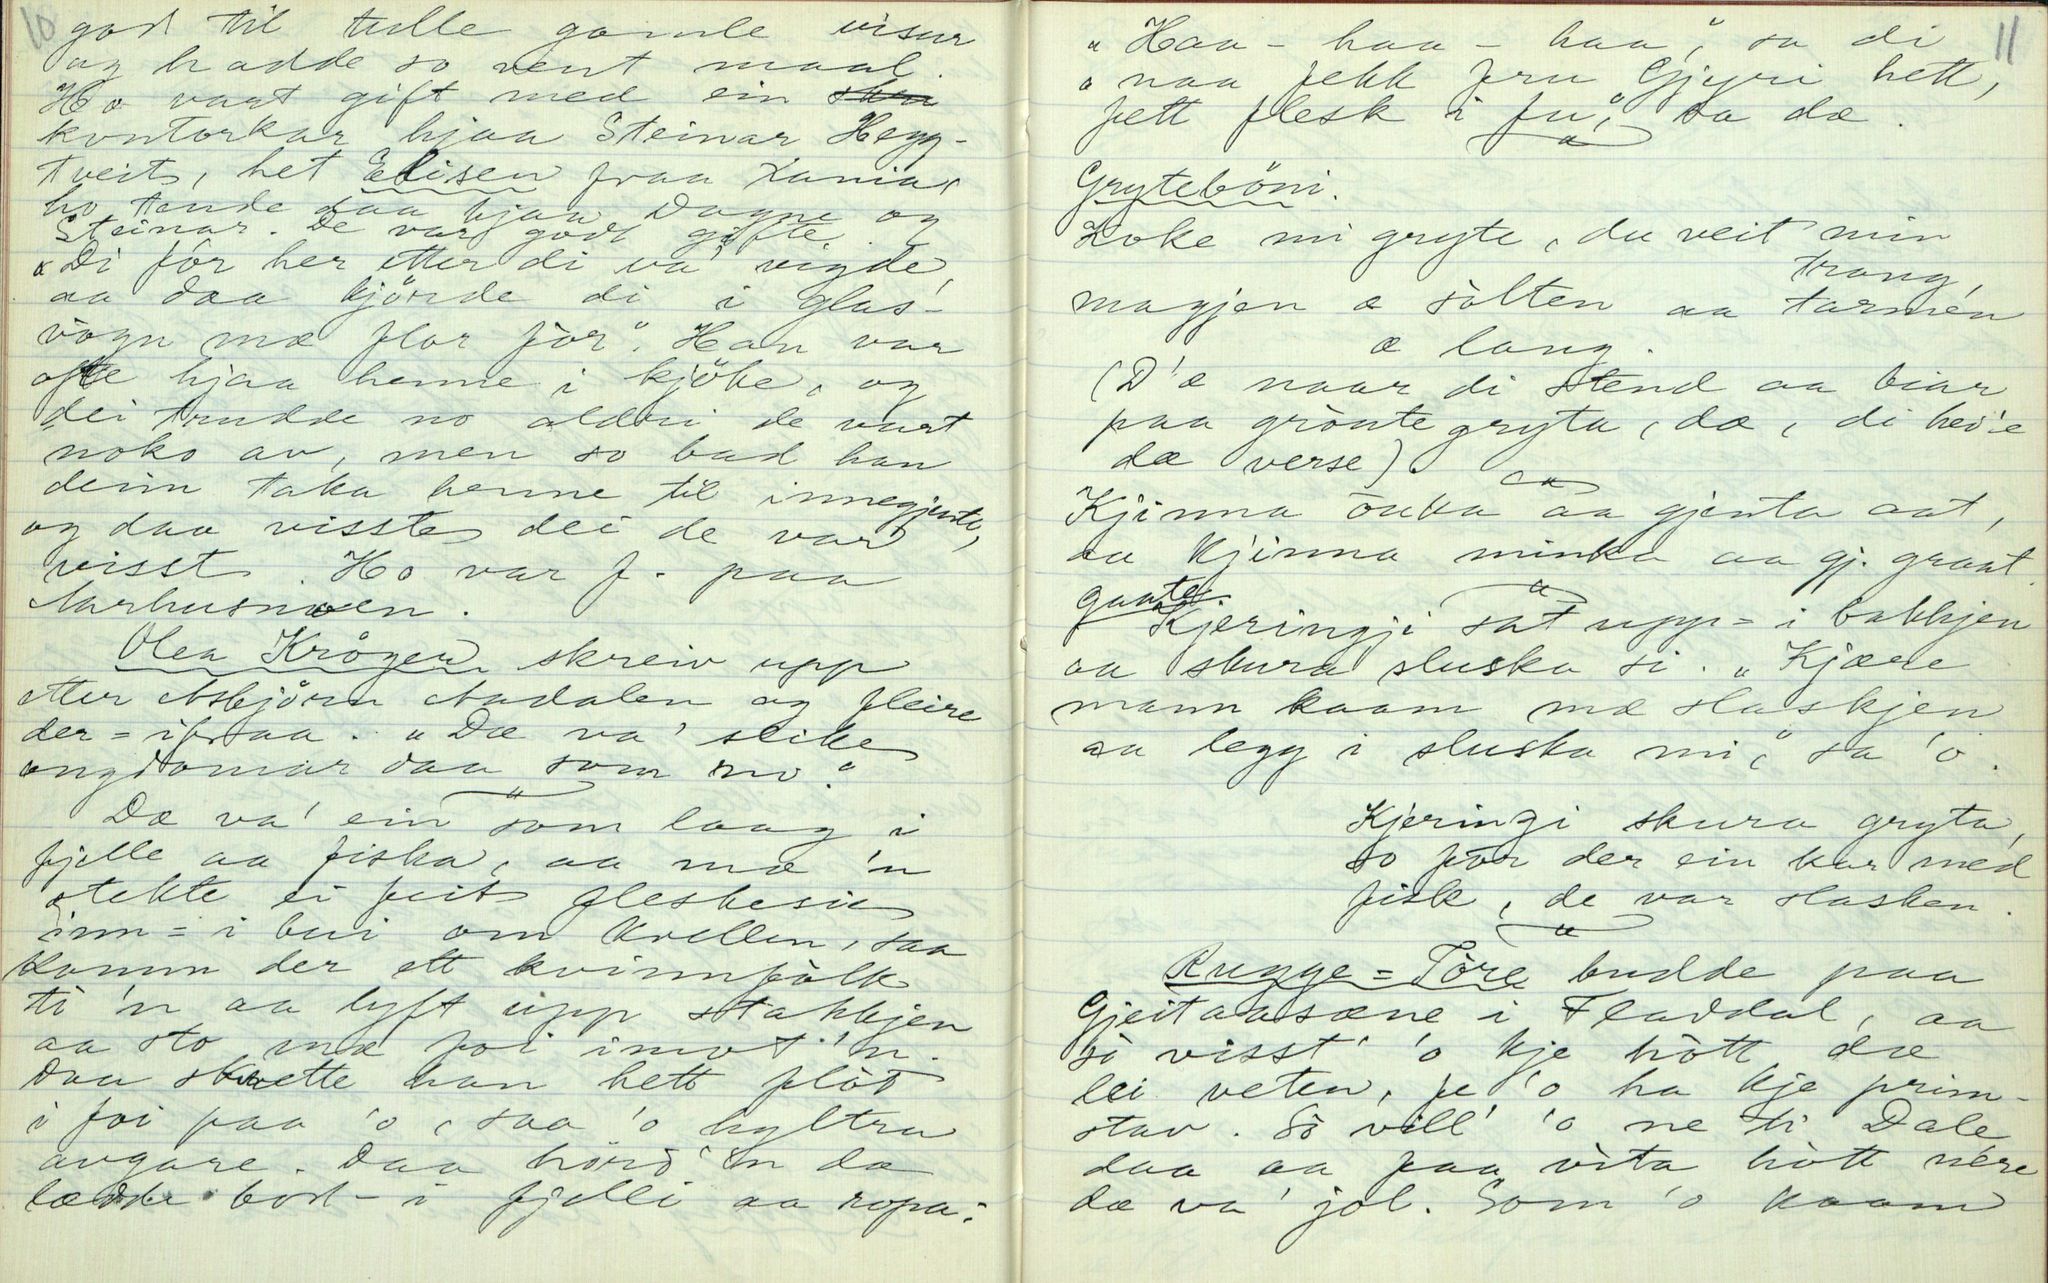 10
god til tulle gamle visur
og hadde so vent maal.
Ho vart gift med ein
kontorkar hjaa Steinar Hegg-
tveit, het Elisen fraa Xania,
ho tende daa hjaa Dagne og
Steinar. De vart godt gifte.
"Di fór her etter di va' vigde,
aa daa kjörde di i glas-
vògn mæ flor fòr". Han var
ofte hjaa henne i kjöke, og
dei trudde no aldri de vart
noko av, men so bad han
deim taka henne til innegjenta,
og daa visste dei de var
visst. Ho var f. paa
Aarhusmoen.
Olea Kröger skreiv upp
etter Asbjörn Aadalen og fleire
der=ifraa. "Dæ va' slike
ongdomar daa som no."
"
Dæ va' ein som laag i
fjelle aa fiska, aa mæ 'n
stekte ei feit fleskesie
inn=i bui om kvellen, saa
kaam der ett kvinnfòlk
ti 'n aa lyft upp stakkjen
aa sto mæ foi imot 'n.
Daa skvette han hett flòt
i foi paa 'o, saa 'o hyltra
avgare. Daa hörd' 'n dæ
lædde bort-i fjelli aa ropa:
11
"Haa-haa-haa", sa di
"naa fekk fru Gjyri hett,
fett flesk i fu", sa dæ.
"
Gryteböni.
Koke mi gryte, du veit min
trang,
magjen æ sòlten aa tarmen
æ lang.
(D'æ naar di stend aa biar
paa gröntegryta, dæ, di hev'e
dæ verse).
"
Kjinna önka aa gjenta aat,
aa kjinna minka aa gj. graat.
"
gaate
Kjeringji sat upp=i bakkjen
aa skura sluska si. "Kjære
mann kaam mæ slaskjen
aa legg i sluska mi", sa 'o.
Kjeringi skura gryta,
so fór der ein kar med
fisk, de var slasken.
"
Rugge=Töre budde paa
Gjeitaasæne i Fladdal, aa
sò visst' 'o kje hòtt dæ
lei veten, fe 'o ha kje prim-
stav. Sò vill' 'o ne ti Dale
daa aa faa vita hòtt nére
dæ va' jol. Som 'o kaam